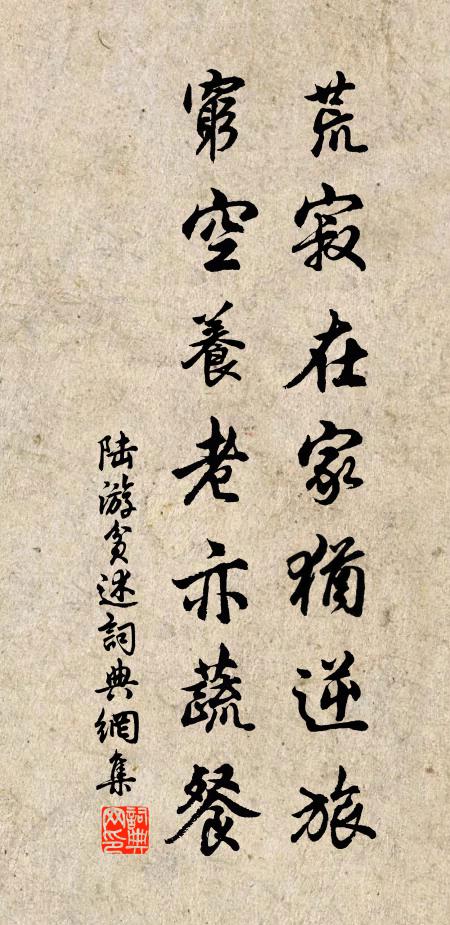 荒寂在家猶逆旅
窮空養老亦蔬餐
陆游貧述詞典網集
詞典
网印